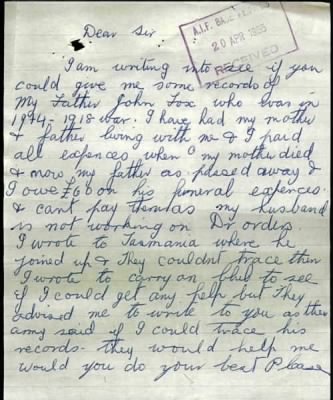 Dear Sir
A.I.F. BASE RECORDS
20 APR 1955
RECEIVED
I am writing into see if you
could give me some records of
My Father John Fox who was in
1914-1918 war. I have had my mother
& father living with me & I paid
all expences when my mother died
& now my father as placed away &
I owe £60 on his funeral expences
& cant pay them as my husband
is not working on Dr orders
I wrote to Tasmania where he
joined up & They couldnt trace then
I wrote to carry on club to see
if I could get any help but They
advised me to write to you as the
army said if I could trace his
records - they would help me
would you do your best Please